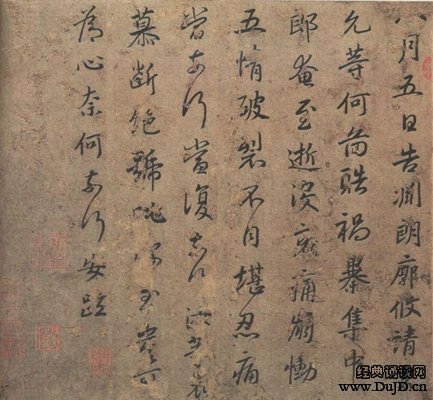 八月五日告淵朗廓攸靖
允等何啚酷禍暴集中
郎奄至逝没哀痛崩慟
五情破裂不自堪忍痛
當奈何當復奈何汝等哀
慕斷絶號咷深至豈可
為心奈何奈何安疏
经典诵读网
www.DujD.cn